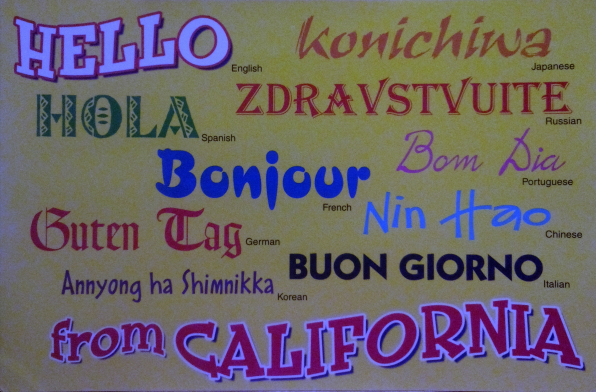 HELLO
English
Konichiwa
Japanese
HOLA
Spanish
ZDRAVSTVUITE
Russian
Bonjour
French
Bom Dia
Portuguese
Guten Tag
German
Nin Hao
Chinese
Annyong ha Shimnikka
Korean
BUON GIORNO
Italian
from CALIFORNIA